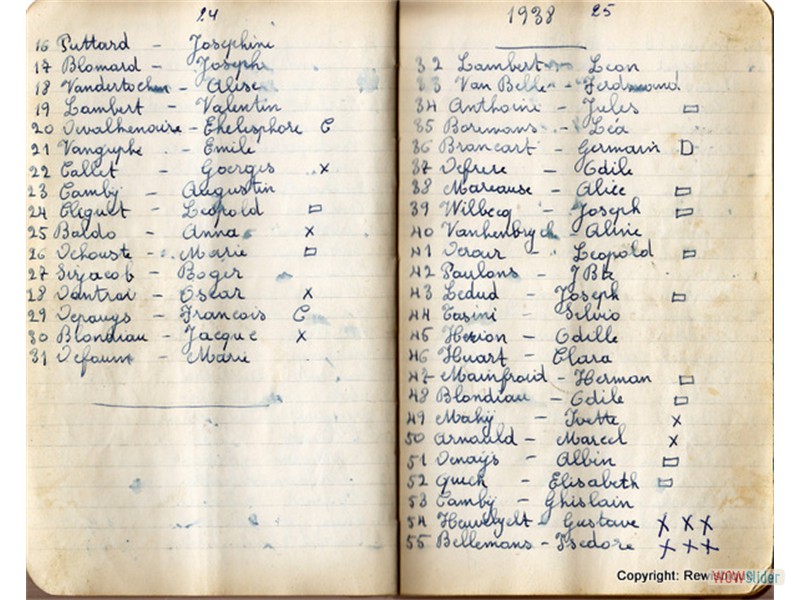 24
16 Puttard - Josephine
17 Blomard - Joseph
18 Vandertochen - Alise
19 Lambert - Valentin
20 Devalhenoire - Ehelesphore C
21 Vanguphe - Emile
22 Callet - Goerges x
23 Camby - Augustin
24 Cliquet - Leopold
25 Baldo - Anna x
26 Dehouste - Marie
27 Serjacob - Roger
28 Vantrai - Oscar x
29 Depauys - Francois C
30 Blondiau - Jacque x
31 Defaum - Marie
1938 25
32 Lambert - Leon
33 Van Belle - Ferdinand
34 Anthoine - Jules
35 Boremans - Léa
36 Brancart - Germain D
37 Defrere - Odile
38 Mareause - Alice
39 Wilbecq - Joseph
40 Vanhenbryck - Alvie
41 Derour - Leopold
42 Paulons - JBte
43 Ledud - Joseph
44 Casini - Silvio
45 Herion - Odille
46 Huart - Clara
47 Mainfroid - Herman
48 Blondiau - Odile
49 Mahy - Ivette x
50 Arnauld - Marcel x
51 Denays - Albin
52 Quick - Elisabeth
53 Camby - Ghislain
54 - Gustave x x x
55 Bellemans - Isedore x x x
Copyright:
WOWSlider